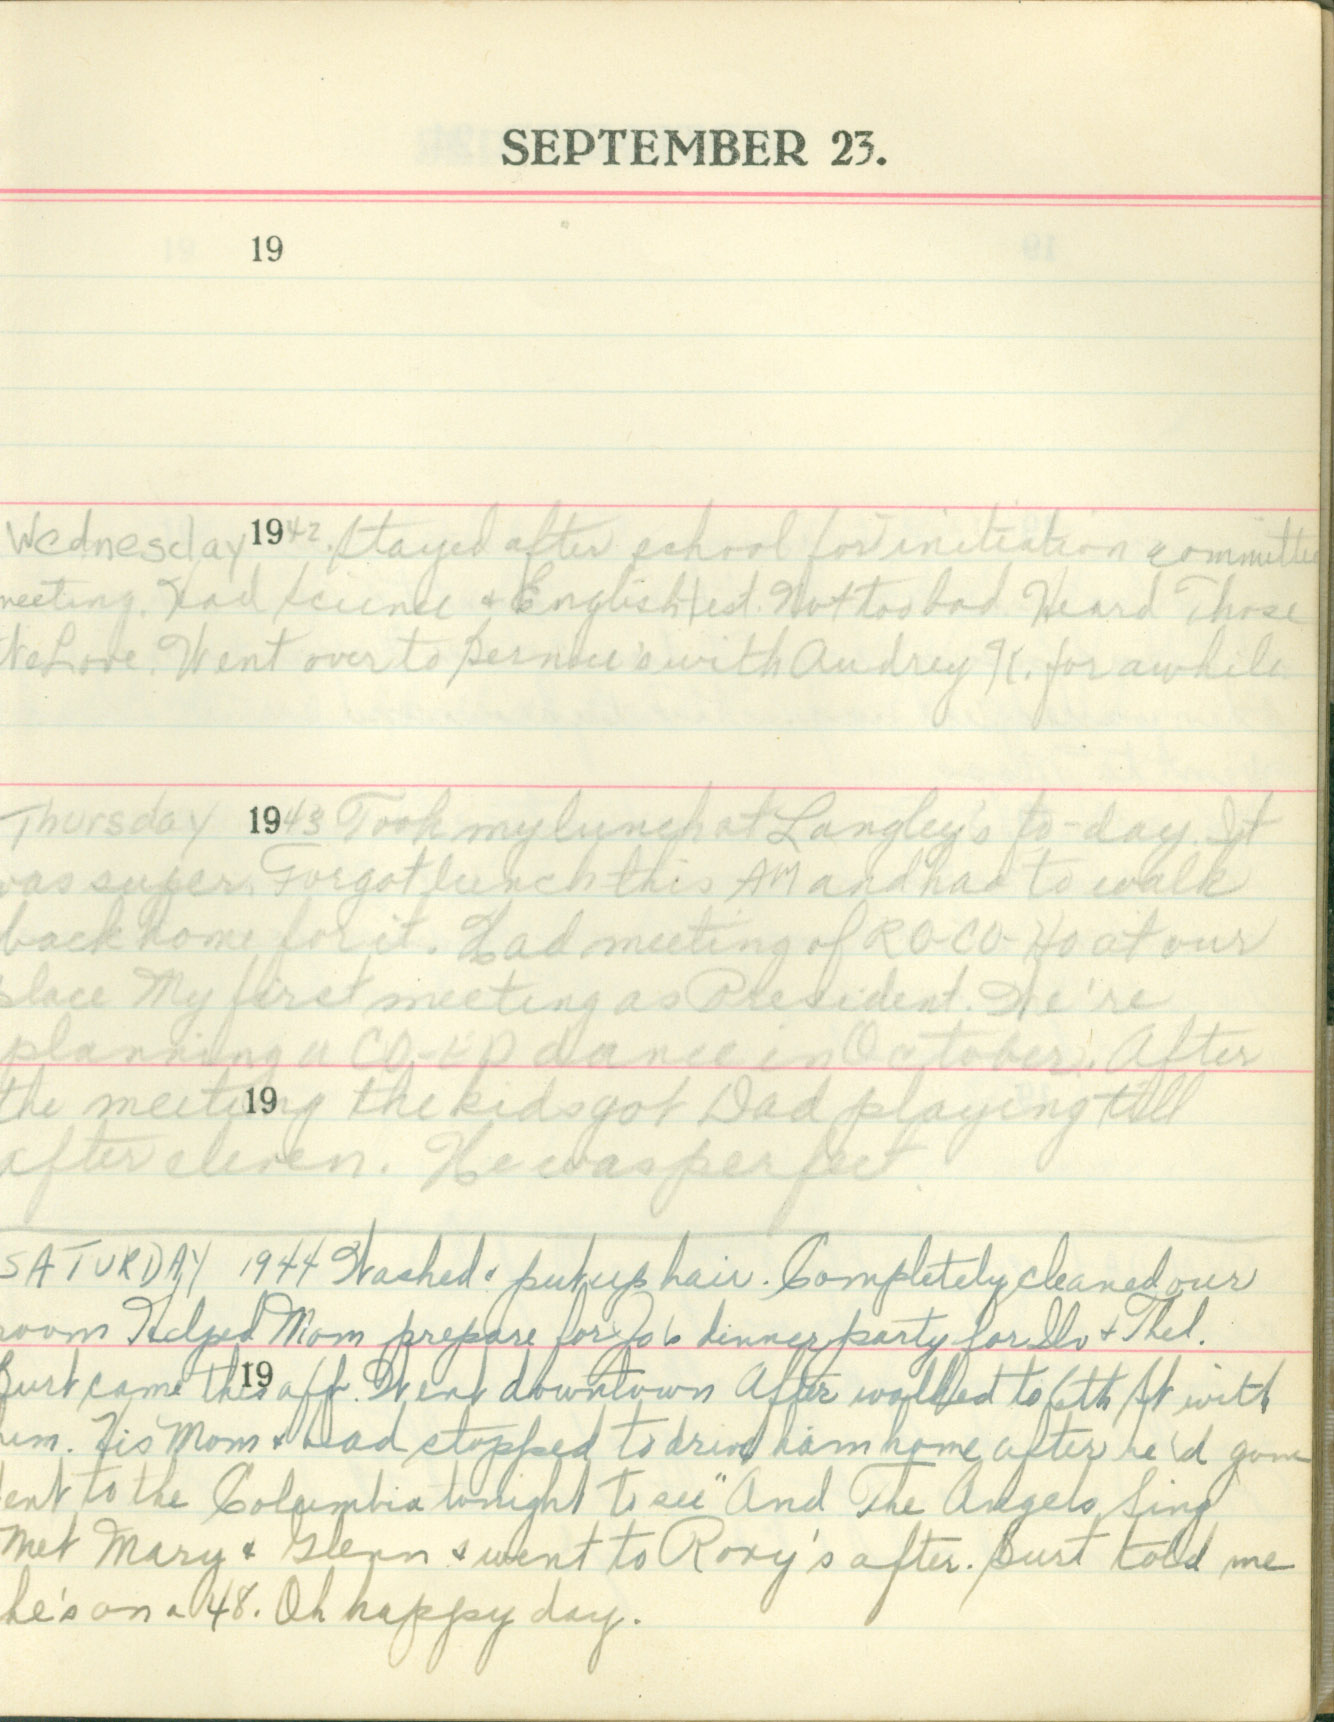 SEPTEMBER 23.
19
Wednesday 1942. Stayed after school for initiation committee
meeting. Had Science & English test. Not too bad. Heard Those
We Love. Went over to Bernice's with Audrey K. for awhile
Thursday 1943 Took my lunch at Langley's to-day. It
was super. Forgot lunch this AM and had to walk
back home for it. Had meeting of RO-CO-HO at our
place My first meeting as President. We're
planning a CO-ED dance in October. After
19
the meeting the kids got Dad playing till
after eleven. He was perfect
SATURDAY 1944 Washed & put up hair. Completely cleaned our
room Helped Mom prepare for Jo's dinner party for & Thel.
19
Burt came this aft. Went downtown After walked to 6th St with
him. His Mom & Dad stopped to drive him home after he'd gone
Went to the Columbia tonight to see "And The Angels Sing
Met Mary & Glenn & went to Roxy's after. Burt told me
he's on a 48. Oh happy day.